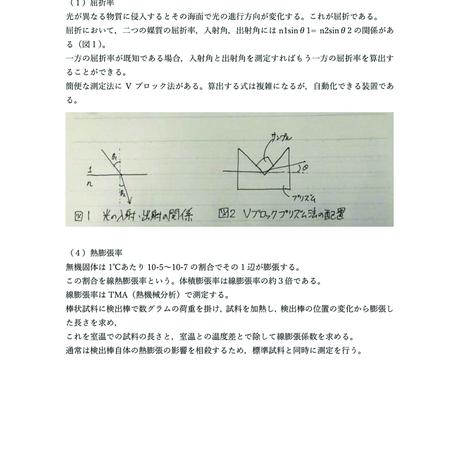 （1）屈折率
光が異なる物質に侵入するとその海面で光の進行方向が変化する。これが屈折である。
屈折において，二つの媒質の屈折率，入射角，出射角には n1sinθ1= n2sinθ2 の関係があ
る（図1）。
一方の屈折率が既知である場合，入射角と出射角を測定すればもう一方の屈折率を算出す
ることができる。
簡便な測定法に V ブロック法がある。算出する式は複雑になるが，自動化できる装置であ
る。
サンプル
θ1
1
n
θ2
θ
プリズム
図1 光の入射・出射の関係
図2 Vブロックプリズム法の配置
（4）熱膨張率
無機固体は 1℃あたり 10-5～10-7 の割合でその 1 辺が膨張する。
この割合を線熱膨張率という。体積膨張率は線膨張率の約 3 倍である。
線膨張率は TMA（熱機械分析）で測定する。
棒状試料に検出棒で数グラムの荷重を掛け，試料を加熱し，検出棒の位置の変化から膨張し
た長さを求め，
これを室温での試料の長さと，室温との温度差とで除して線膨張係数を求める。
通常は検出棒自体の熱膨張の影響を相殺するため，標準試料と同時に測定を行う。